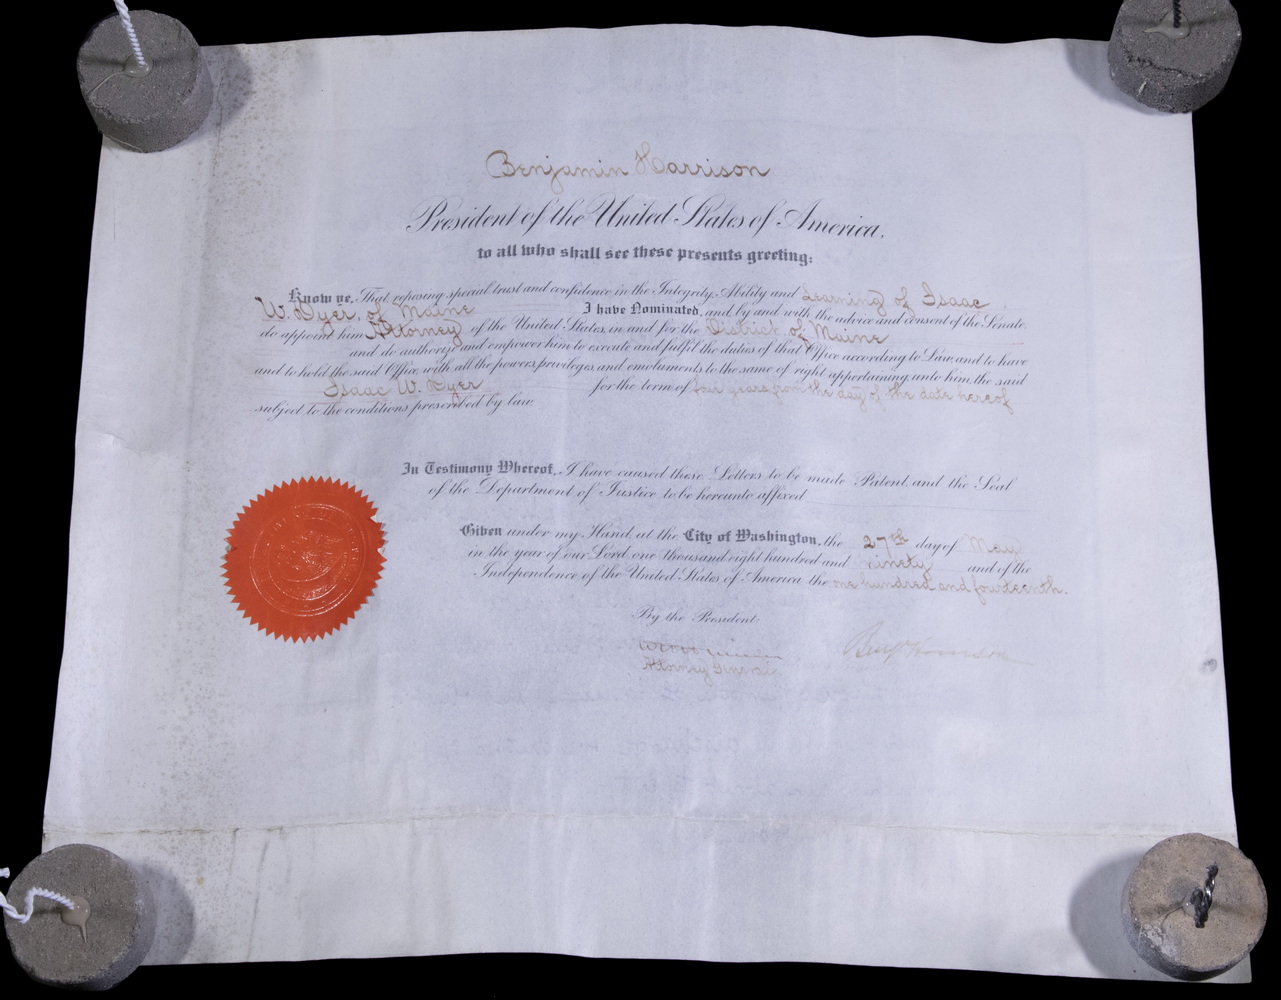 Benjamin Harrison
President of the United States of America,
to all who shall see these presents greeting:
Know ye, That reposing special trust and confidence in the Integrity, Ability and Learning of Isaac
W. Dyer, of Maine I have Nominated, and by and with the advice and consent of the Senate,
do appoint him Attorney of the United States, in and for the District of Maine
and do authorize and empower him to execute and fulfil the duties of that Office according to Law and to have
and to hold the said Office, with all the powers, privileges and emoluments to the same of right appertaining, unto him, the said
Isaac W. Dyer for the term of four years from the day of the date hereof
subject to the conditions prescribed by law.
In Testimony Whereof, I have caused these Letters to be made Patent, and the Seal
of the Department of Justice to be hereunto affixed
Given under my Hand, at the City of Washington, the 27th day of May
in the year of our Lord one thousand eight hundred and ninety and of the
Independence of the United States of America the one hundred and fourteenth.
By the President:
Benj Harrison
Attorney General